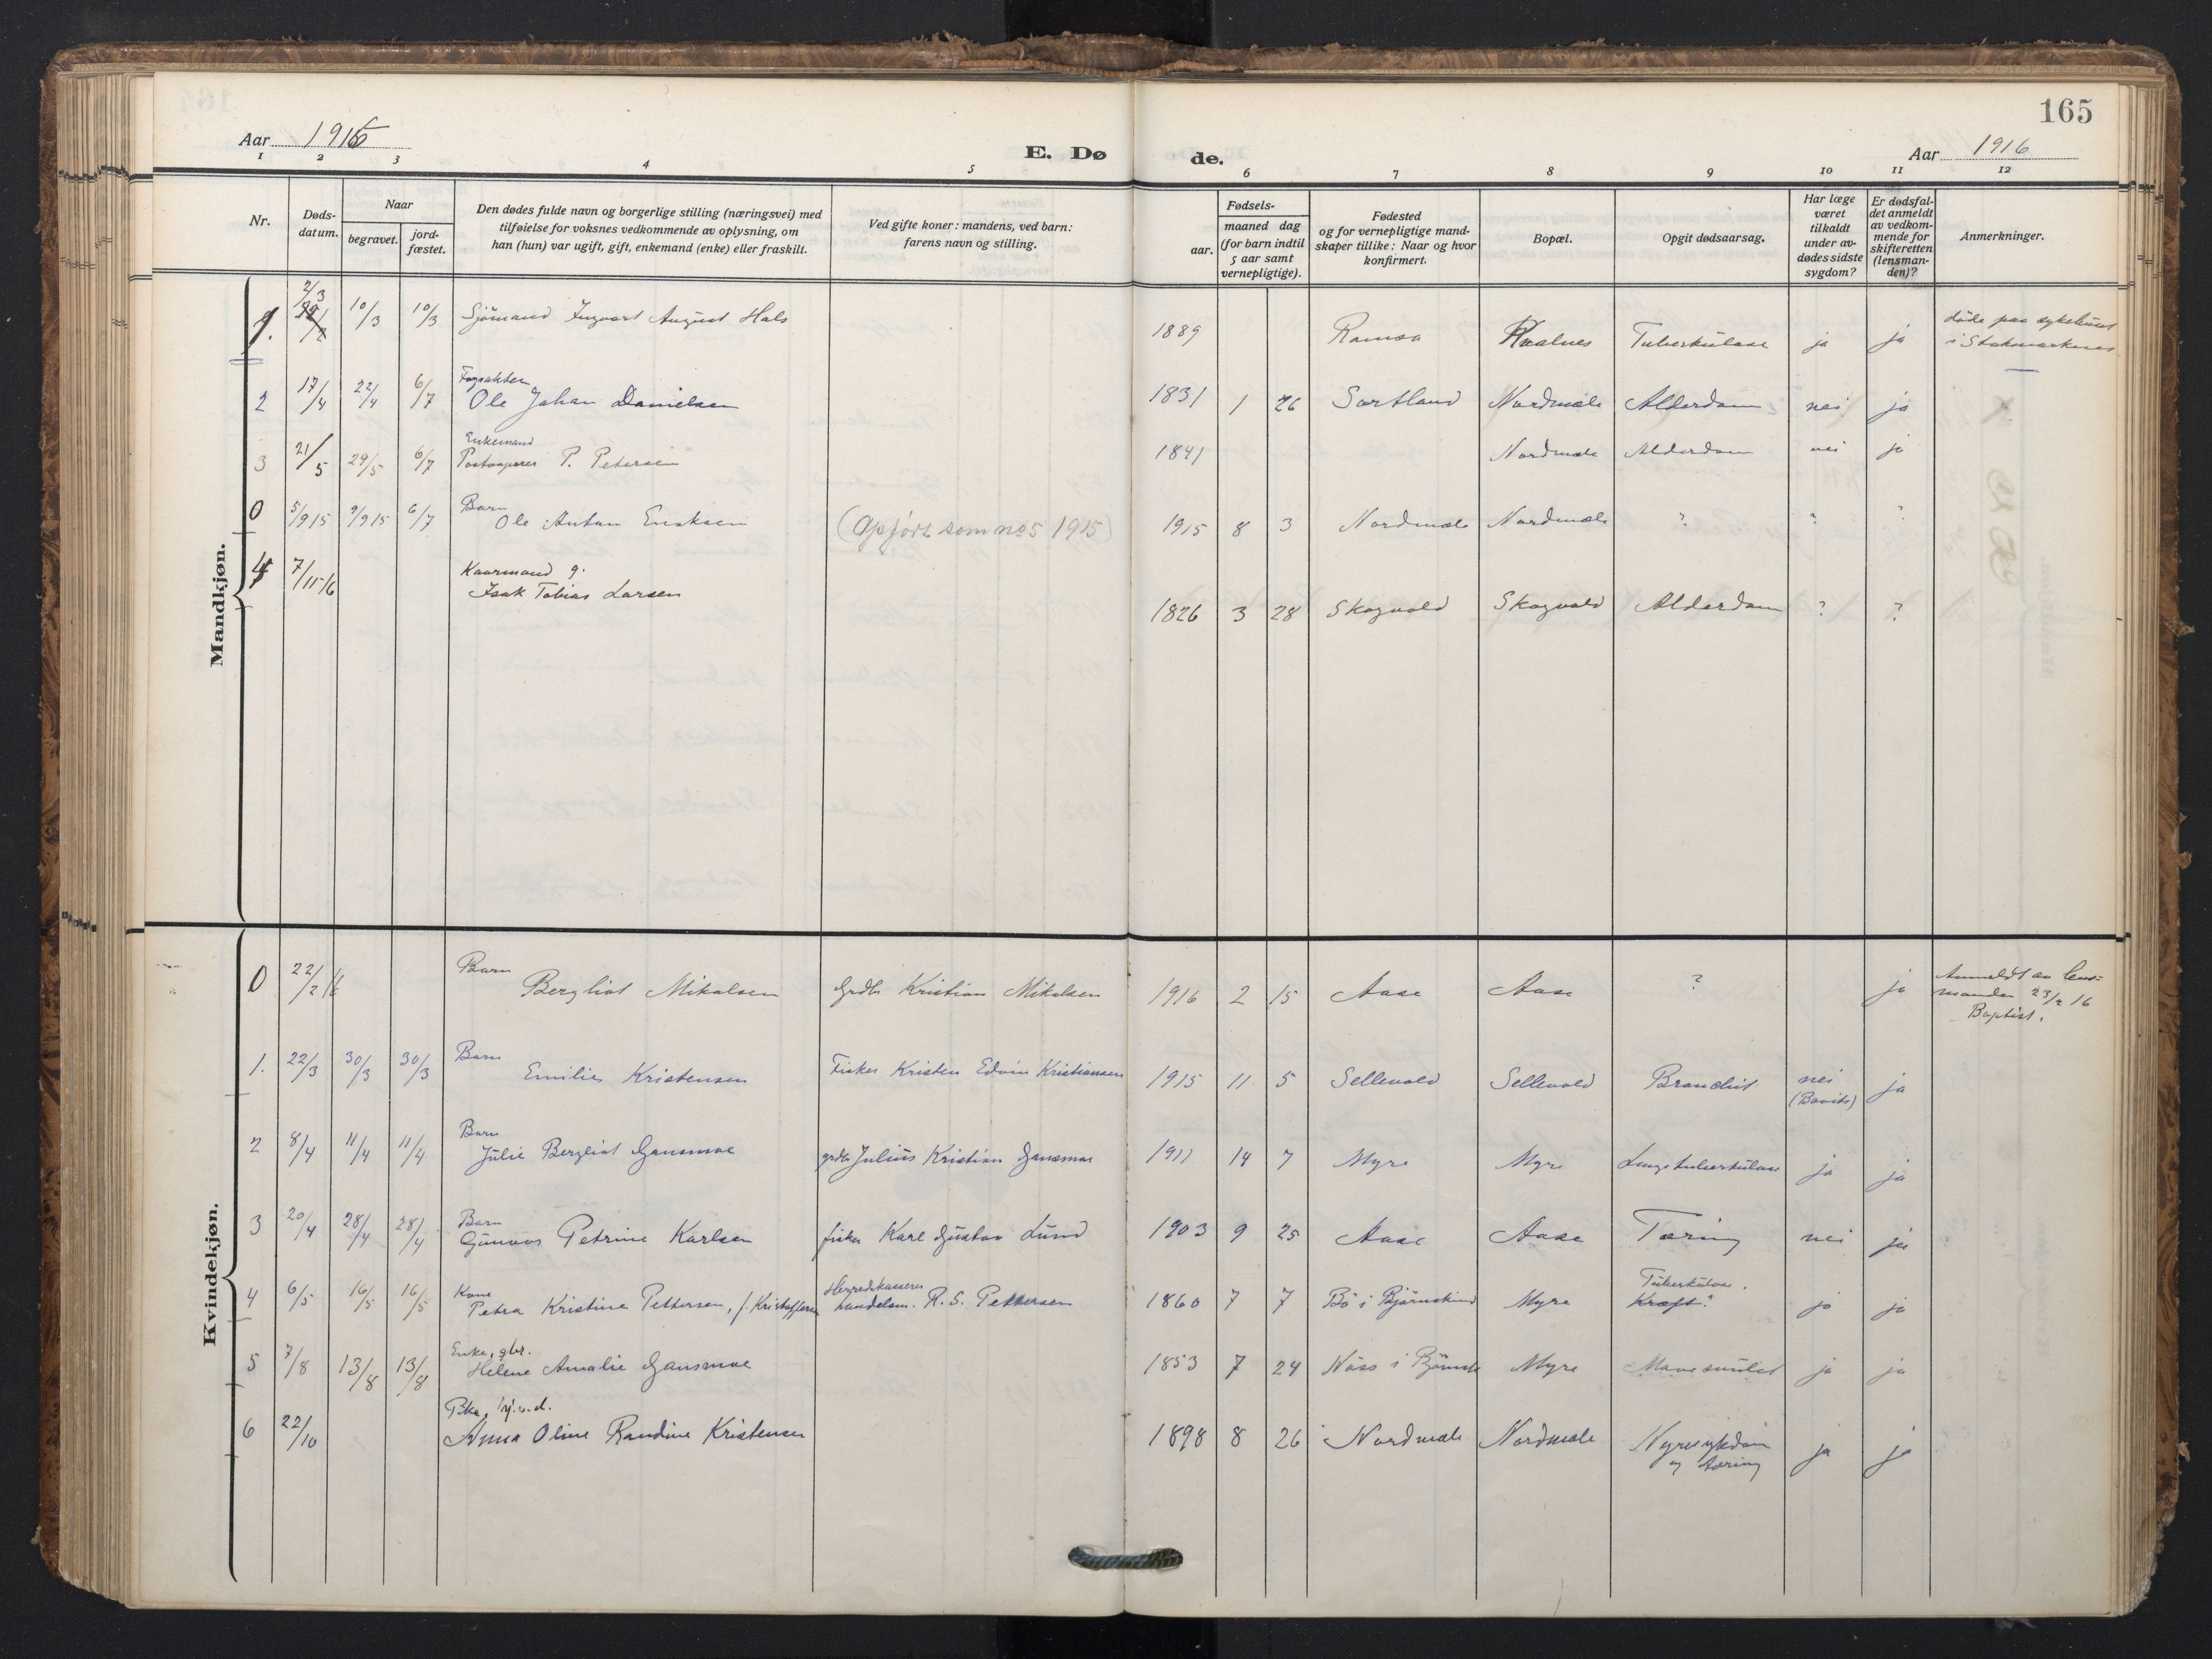 165
Aar 1916
E. Dø
de.
Aar 1916
1 2 3 4 5 6 7 8 9 10 11 12
Nr.
Døds-
datum.
Naar
begravet.
jord-
fæstet.
Den dødes fulde navn og borgerlige stilling (næringsvei) med
tilføielse for voksnes vedkommende av oplysning, om
han (hun) var ugift, gift, enkemand (enke) eller fraskilt.
Ved gifte koner: mandens, ved barn:
farens navn og stilling.
Fødsels-
aar.
maaned dag
(for barn indtil
5 aar samt
vernepligtige).
Fødested
og for vernepligtige mand-
skaper tillike: Naar og hvor
konfirmert.
Bopæl.
Opgit dødsaarsag.
Har læge
været
tilkaldt
under av-
dødes sidste
sygdom?
Er dødsfal-
det anmeldt
av vedkom-
mende for
skifteretten
(lensman-
den)?
Anmerkninger.
Mandkjøn.
2/3
1. 10/3 10/3 Sjømand Ingvart August Hals 1889 Ramsa Tuberkulose ja ja
døde paa sykehuset
i Stokmarknes
2 17/4 22/4 6/7 Ole Johan Danielsen 1831 1 26 Sortland Nordmele Alderdom nei ja
Enkemand
3 21/5 29/5 6/7 P. Petersen 1841 Nordmele Alderdom nei ja
Barn
0 5/9 15 9/9 15 6/7 Ole Anton (Opført som no 5 1915) 1915 8 3 Nordmele Nordmele ? ? ?
Kaarmand g.
4 7/11 16 Isak Tobias Larsen 1826 3 28 Skogvold Skogvold Alderdom ? ?
Kvindekjøn.
Barn
0 22/2 16 Bergliot Mikalsen Grdb. Kristian Mikalsen 1916 2 15 Aase Aase ? ja
Anmeldt av lens-
manden 23/2 16
Baptist.
Barn
1. 22/3 30/3 30/3 Emilie Kristensen Fisker Kristen Edvin Kristiansen 1915 11 5 Sellevold Sellevold nei ja
Barn
2 8/4 11/4 11/4 Julie Bergliot Gansmoe grdb Julius Kristian Gansmoe 1911 14 7 Myre Myre Lungetuberkulose ja ja
Barn
3 20/4 28/4 28/4 Gunvor Petrine Karlsen fisker Karl Gustav Lund 1903 9 25 Aase Aase Tæring nei ja
Kone Herredskasserer Tuberkulose.
4 6/5 16/5 16/5 Petra Kristine Pettersen, f. Kristoffersen handelsm. R. S. Pettersen 1860 7 7 Bø i Bjørnskind Myre Kræft? ja ja
Enke, gbr.
5 7/8 13/8 13/8 Helene Amalie Gansmoe 1853 7 24 Næss i Bjørnsk Myre Mavesaulst ja ja
6 22/10 Anna Oline Randine Kristensen 1898 8 26 Nordmele Nordmele Nyresykdom ja ja
og tæring